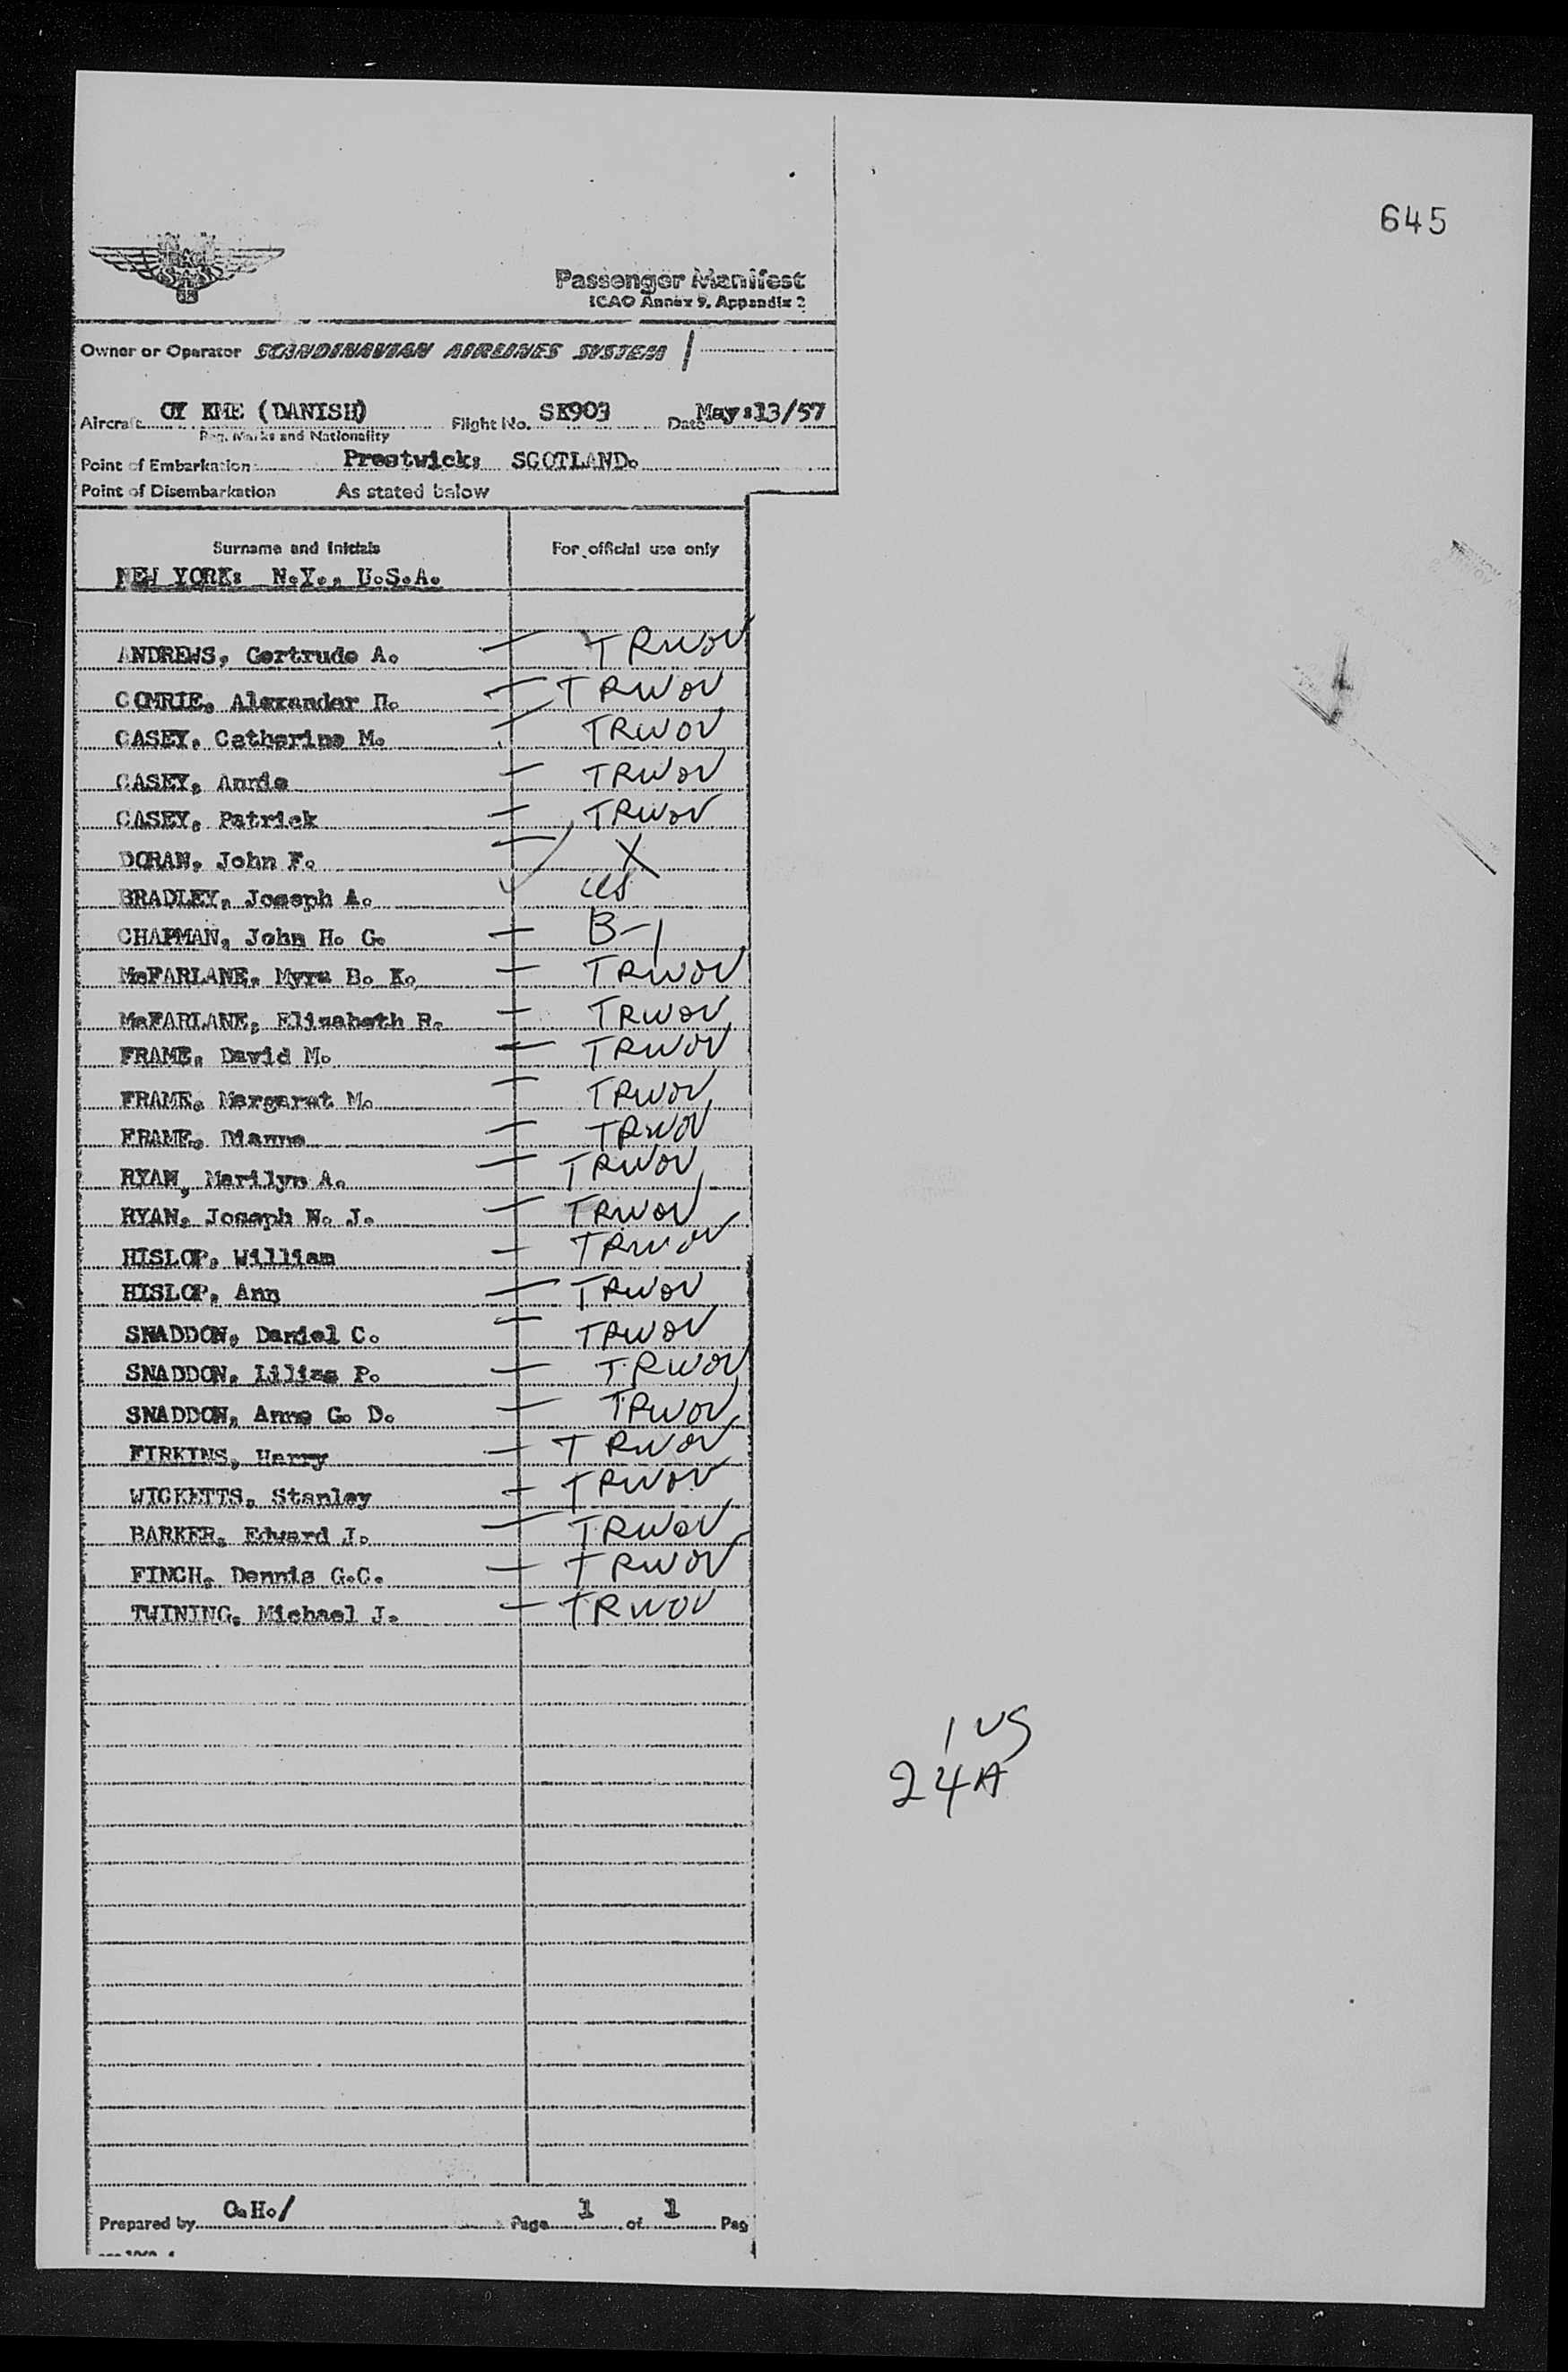 645
Passenger Manifest
ICAO Annex 9, Appendix 2
Owner or Operator SCANDINAVIAN AIRLINES SYSTEM
Aircraft OY KME (DANISH) Flight No. SK903 Date May:13/57
Reg. Marks and Nationality
Point of Embarkation Prestwick: SCOTLAND.
Point of Disembarkation As stated below
Surname and Initials For official use only
NEW YORK: N.Y., U.S.A.
ANDREWS, Gertrude A. TRWOV
COMRIE, Alexander TRWOV
CASEY, Catherine M. TRWOV
CASEY, Annie TRWOV
CASEY, Patrick TRWOV
DORAN, John F. X
BRADLEY, Joseph A. US
CHAPMAN, John H. G. B-1
McFARLANE, Myra B. K. TRWOV
McFARLANE, Elizabeth R. TRWOV
FRAME, David M. TRWOV
FRAME, Margaret M. TRWOV
FRAME, Dianne TRWOV
RYAN, Marilyn A. TRWOV
RYAN, Joseph W. J. TRWOV
HISLOP, William TRWOV
HISLOP, Ann TRWOV
SNADDON, Daniel C. TRWOV
SNADDON, Lilias P. TRWOV
SNADDON, Anne G. D. TRWOV
FIRKINS, Harry TRWOV
WICKETTS, Stanley TRWOV
BARKER, Edward J. TRWOV
FINCH, Dennis G.C. TRWOV
TWINING, Michael J. TRWOV
1 US
24A
Prepared by C.H./ Page 1 of 1 Pag